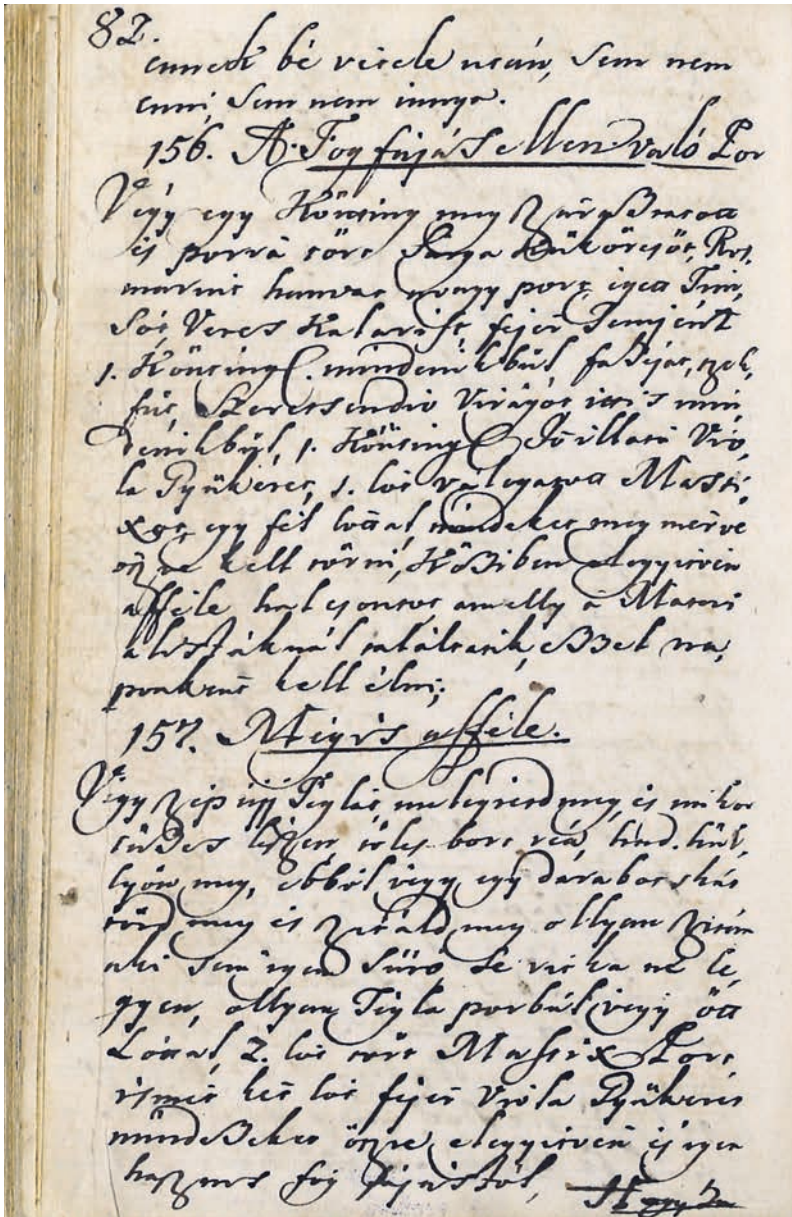 82.
ennek bé vitele után, Sem nem
enni, Sem nem innya.
156. A: Fog fájás ellen való Por
Végy egy Könting meg
és porrá tört Sárga Ros,
marint hamvat avagy port, igett Tim,
Sót, Veres Kalarist, fejér Temjént
1. Köntingl. mindenikbül, faSéját, szek,
füt, Szeretsendio Virágot ittis min
denikbül, 1. Köntingl Jó illatú Vio,
la Gyükeret, 1. lót válogatott Masti,
xot, egy fél lóttal, mindeket meg mérve
öszve kell törni, Közibem elegyitvén
afféle haltsontot, amelly a Materi
alistáknál találtatik, ezzel na,
ponként kell élni;
157. Mégis afféle.
Végy szép ujj Téglát, melegitsd meg, és mikor
tüzes lészen tölts bort reá, hadd hül,
lyön meg, ebből végy egy darabotskát
törd meg és szitáld meg ollyan szitán
aki sem igen Sürö Se ritka ne lé,
gyen, ollyan Tégla porbúl végy ött
Lóttal, 2. lót tört Mastix Port,
ismét két lót fejér Viola Gyükeret
mindezeket öszve elegyitvén és igen
hasznos fog fájástól,